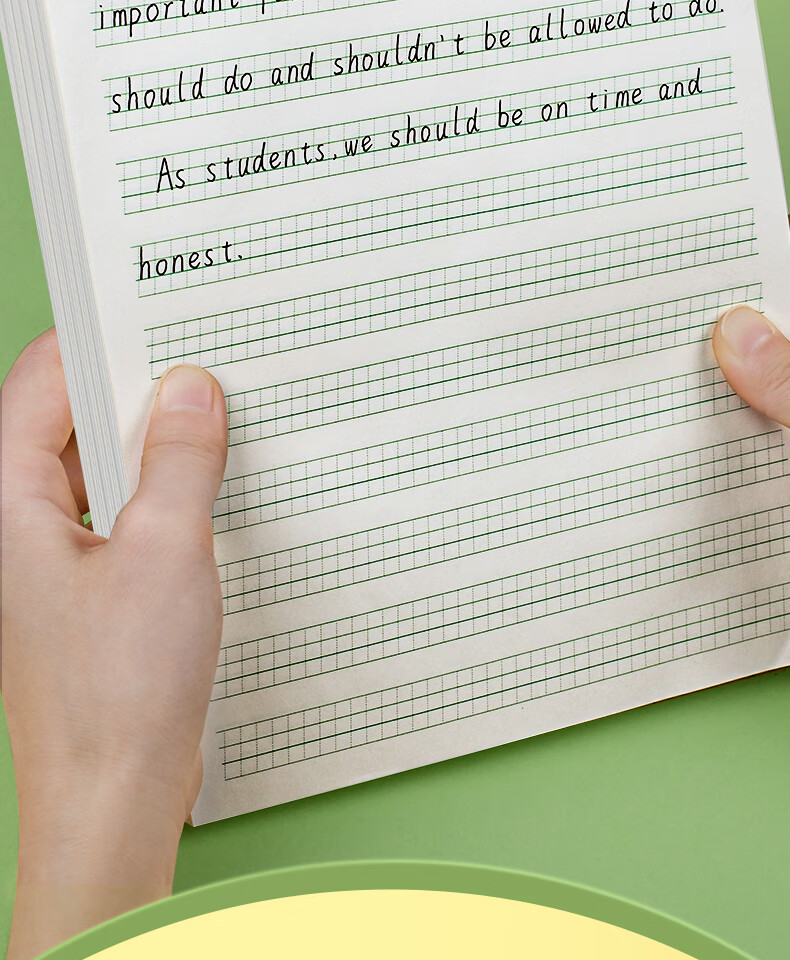 important
should do and shouldn't be allowed to do.
As students, we should be on time and
honest.